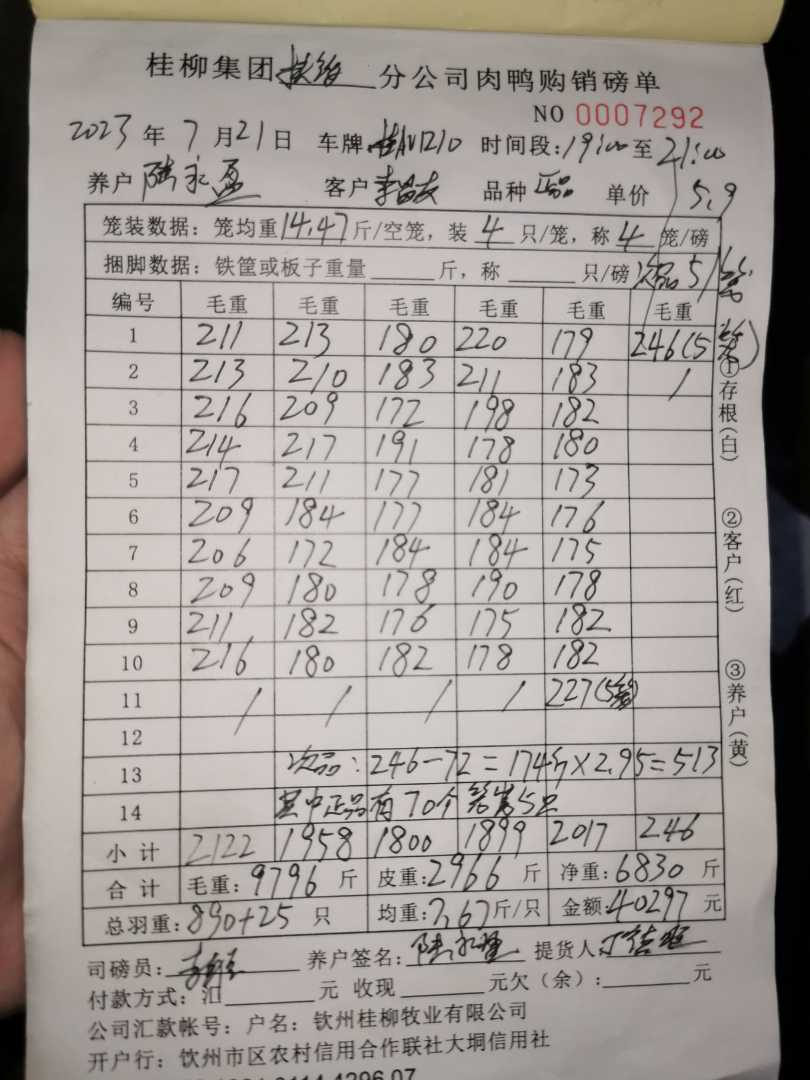 桂柳集团 分公司肉鸭购销磅单
NO 0007292
2023 年 7 月 21 日 车牌: 时间段: 19:00 至 21:00
养户 陆永盈 客户 品种 正品 单价 5.9
笼装数据: 笼均重 14.47 斤/空笼, 装 4 只/笼, 称 4 笼/磅
捆脚数据: 铁筐或板子重量 斤, 称 只/磅 次品 5
编号 毛重 毛重 毛重 毛重 毛重 毛重
1 211 213 180 220 179 246(5笼)
2 213 210 183 211 183 /
3 216 209 172 198 182
4 214 217 191 178 180
5 217 211 177 181 173
6 209 184 177 184 176
7 206 172 184 184 175
8 209 180 178 190 178
9 211 182 176 175 182
10 216 180 182 178 182
11 / / / / 227(5笼)
12
13 次品: 246-72=174斤×2.95=513
14 其中正品有70个笼装5只
小计 2122 1958 1800 1899 2017 246
合计 毛重: 9796 斤 皮重: 2966 斤 净重: 6830 斤
总羽重: 890+25 只 均重: 7.67 斤/只 金额: 40297 元
司磅员: 养户签名: 陆永盈 提货人:
付款方式: 汇 元 收现 元欠(余): 元
公司汇款帐号: 户名: 钦州桂柳牧业有限公司
开户行: 饮州市区农村信用合作联社大垌信用社
①存根(白)
②客户(红)
③养户(黄)